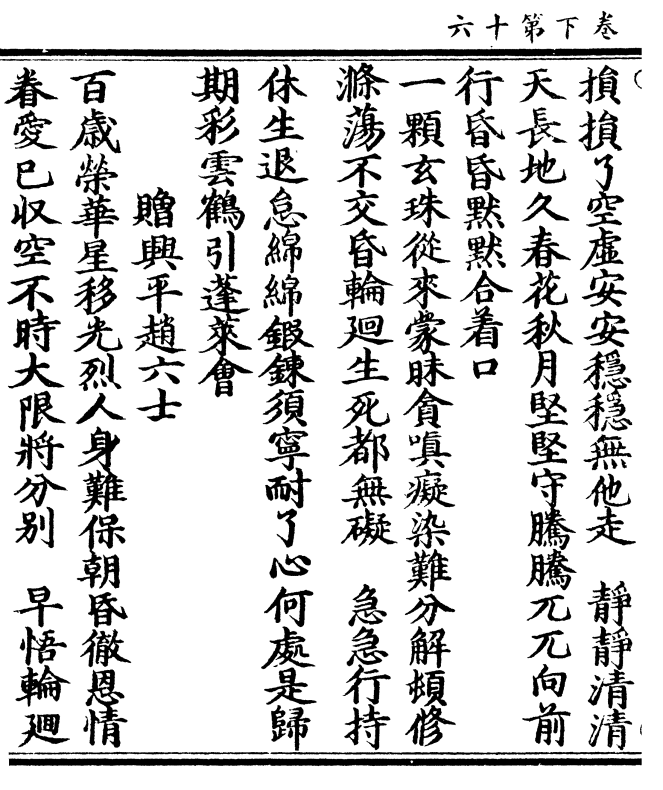 卷下第十六
損損了空虛安安穩穩無他走　靜靜清清
天長地久春花秋月堅堅守騰騰兀兀向前
行昏昏默默合着口
一顆玄珠從來蒙昧貪嗔癡染難分解頓修
滌蕩不交昏輪廻生死都無礙　急急行持
休生退怠綿綿鍜鍊須寧耐了心何處是歸
期彩雲鶴引蓬萊會
贈興平趙六士
百歲榮華星移光烈人身難保朝昏徹恩情
眷愛已収空不時大限將分别　早悟輪廻